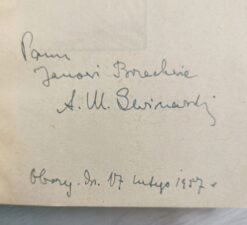 Panu
Janowi Brzechwie
A. M. Swinarski
Obory. dn. 17 lutego 1957 r.